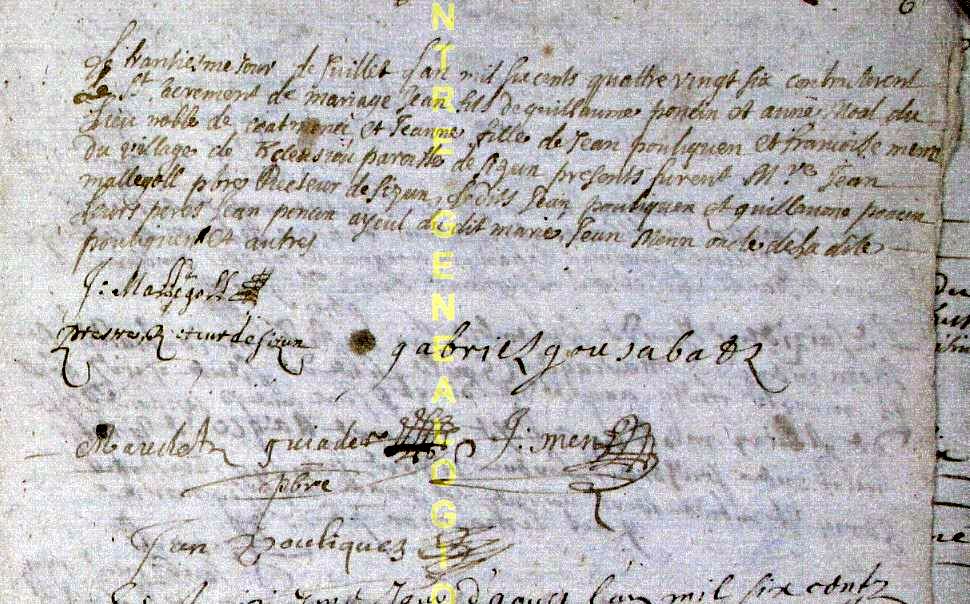 6
Le trantiesme Jour de Juillet Lan mil six cents quattre vingt six contracterent
le St. acrement de mariage Jean fils de guillaume poncin et anne Moal du
Lieu noble de et Jeanne fille de Jean pouliquen et francoise menn
du village de paroisse de Sizun presents furent M.re Jean
mallegoll pbre Recteur de Sizun, Jean pouliquen et guillaume poncin
leurs peres Jean poncin ayeul du dit marié, Jean Menn oncle de la dite
pouliquen et autres
J: Mallegoll
prestre, Recteur de sizun gabriel
guiader J: men
pbre
Jan Pouliquen
Jour d'aoust Lan mil six centz
CENTRE GENEALOGI